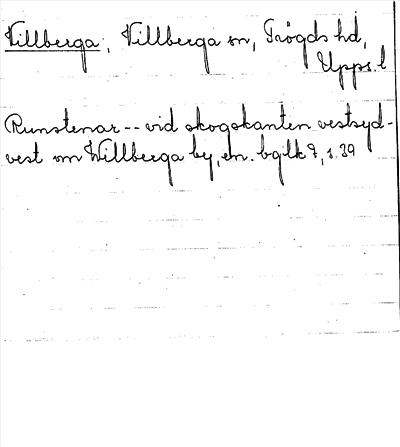 Villberga, Villberga sn, Trögds hd,
Upps. l
Runstenar -- vid skogskanten vestsyd-
vest om Willberga by, en. bglk 7, s. 39